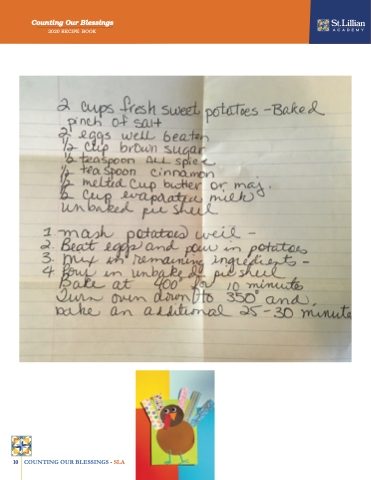 Counting Our Blessings
2020 RECIPE BOOK
St.Lillian
ACADEMY
2 cups fresh sweet potatoes - Baked
pinch of salt
2 eggs well beaten
1/2 cup brown sugar
1/2 teaspoon all spice
1/2 teaspoon cinnamon
1/2 melted cup butter or maj.
1/2 cup evaporated milk
unbaked pie shell
1 mash potatoes well -
2. Beat eggs and pour in potatoes
3. mix in remaining ingredients -
4 Pour in unbaked pie shell
Bake at 400° for 10 minutes
Turn oven down to 350° and,
bake an additional 25-30 minute
10 COUNTING OUR BLESSINGS - SLA